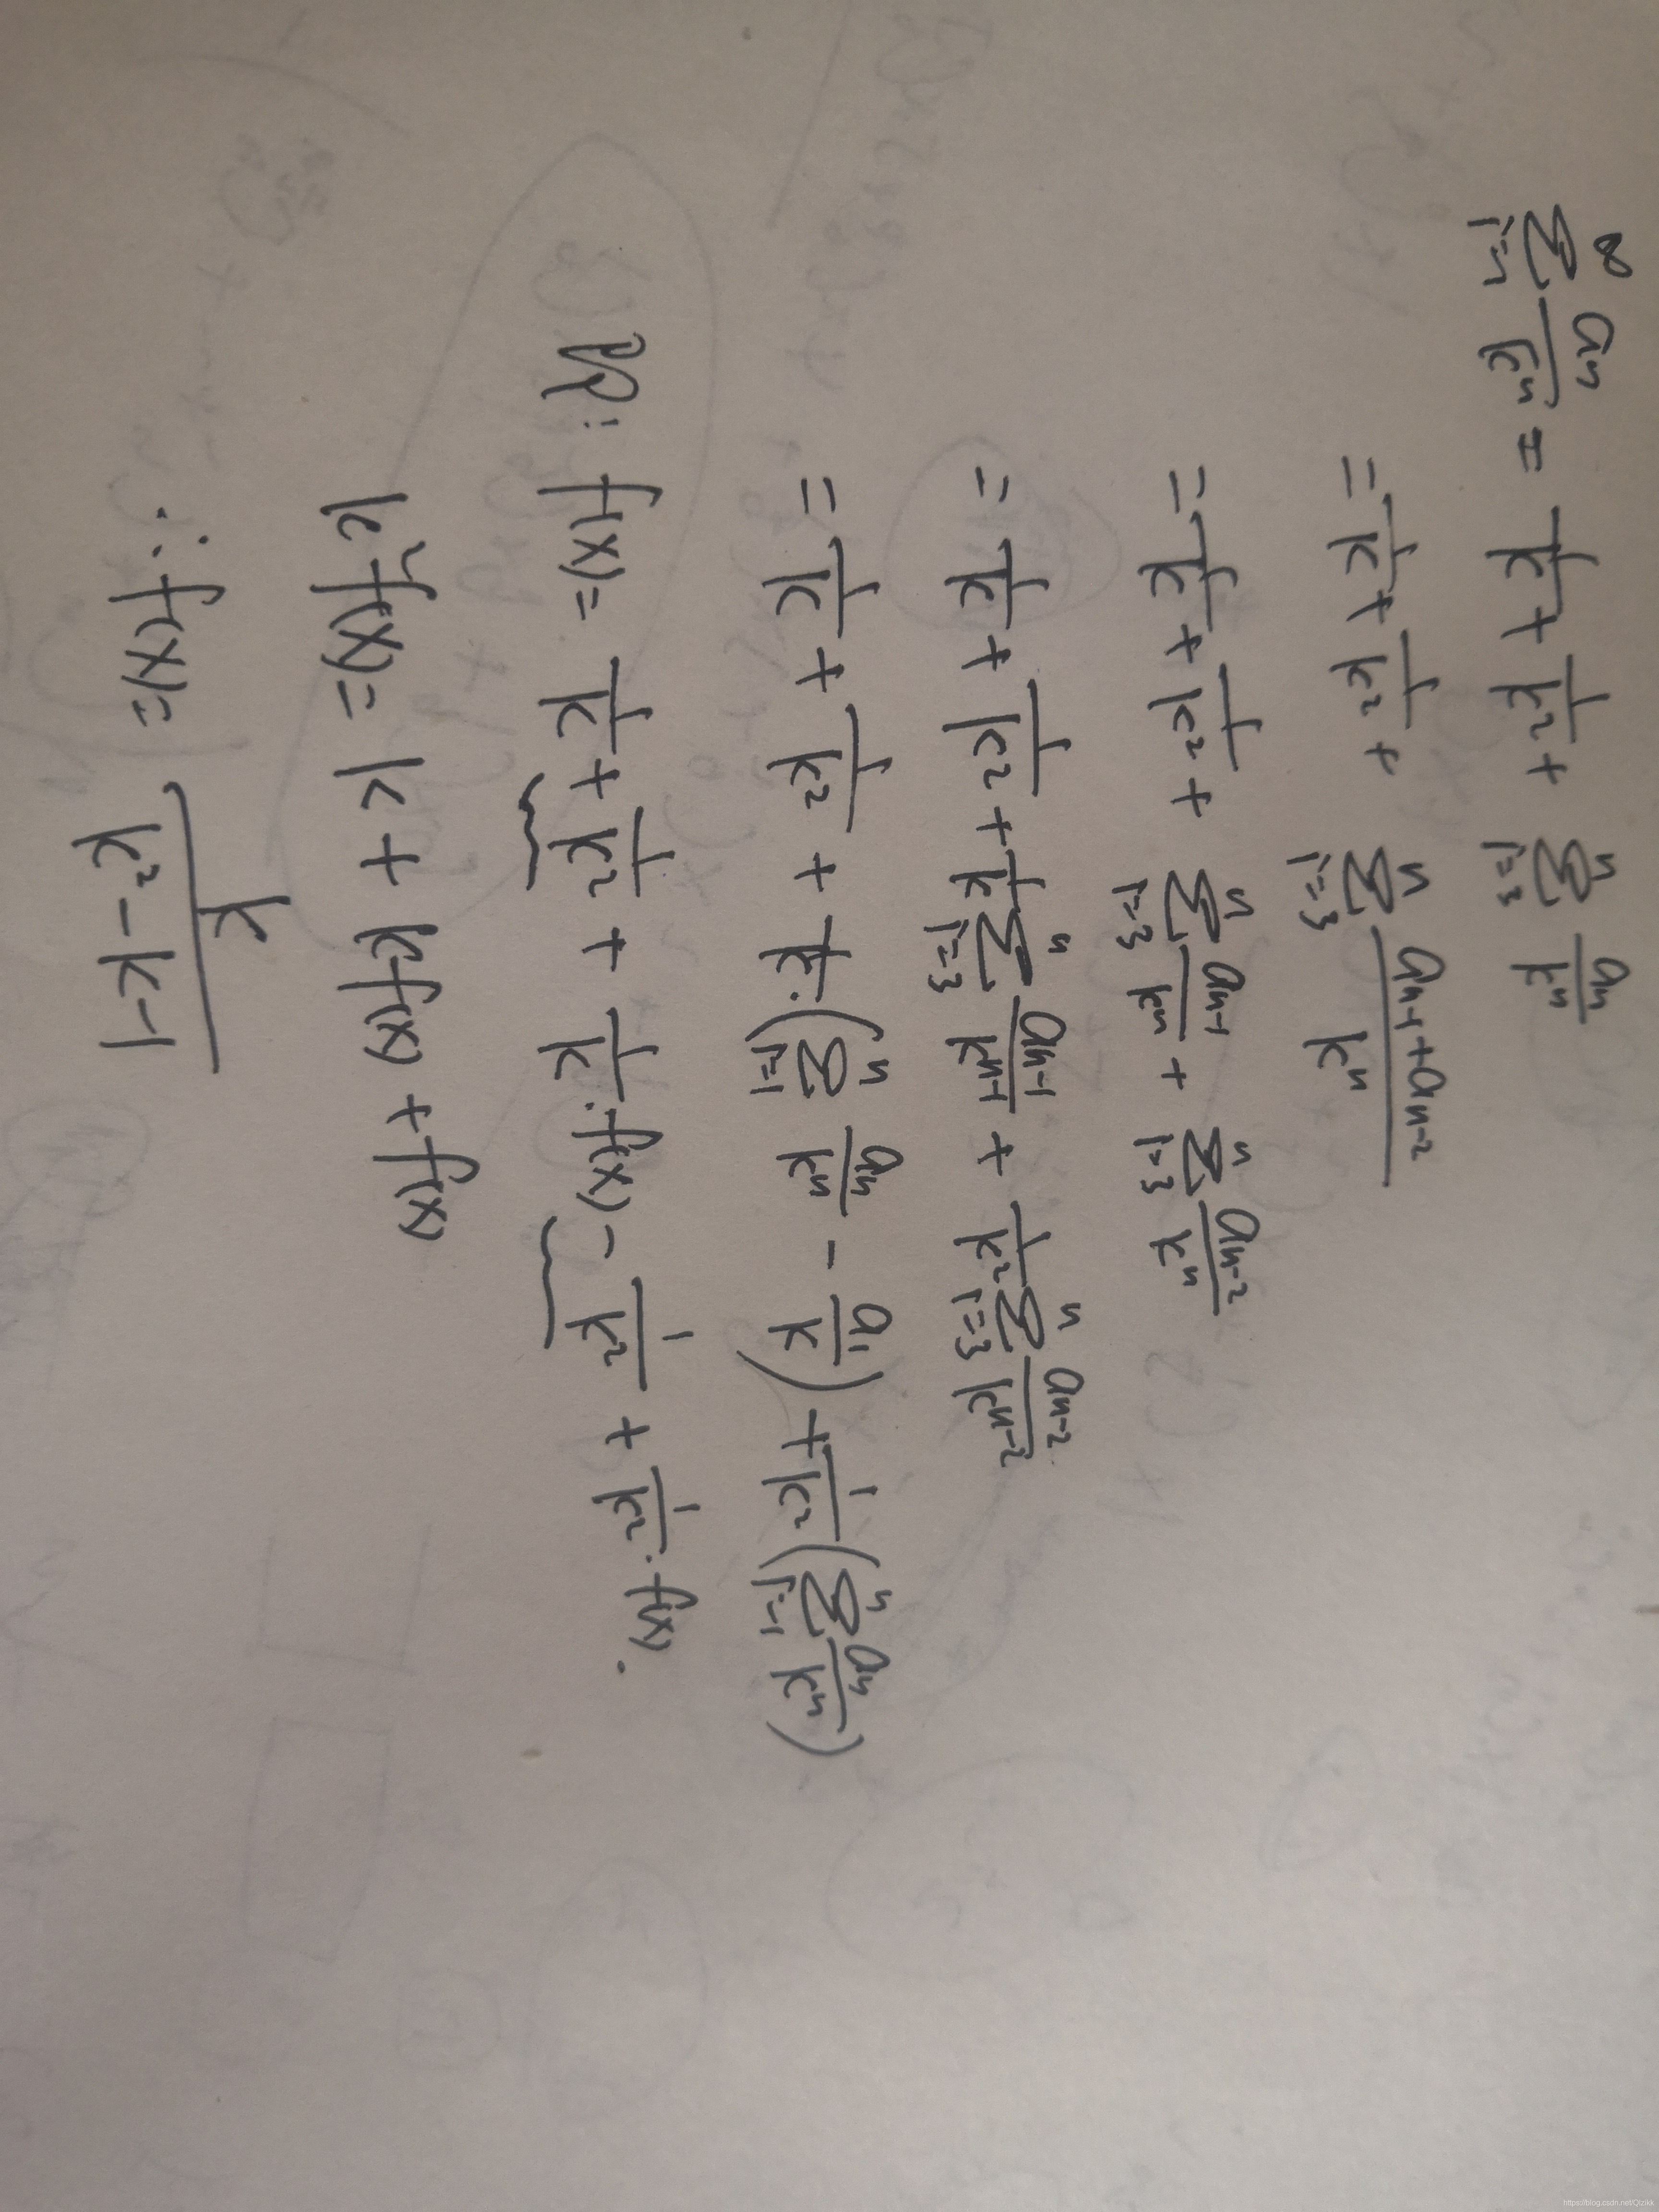 $\sum_{n=1}^{\infty} \frac{a_n}{k^n} = \frac{1}{k} + \frac{1}{k^2} + \sum_{i=3}^{n} \frac{a_n}{k^n}$
$= \frac{1}{k} + \frac{1}{k^2} + \sum_{i=3}^{n} \frac{a_{n-1}+a_{n-2}}{k^n}$
$= \frac{1}{k} + \frac{1}{k^2} + \sum_{i=3}^{n} \frac{a_{n-1}}{k^n} + \sum_{i=3}^{n} \frac{a_{n-2}}{k^n}$
$= \frac{1}{k} + \frac{1}{k^2} + \frac{1}{k} \sum_{i=3}^{n} \frac{a_{n-1}}{k^{n-1}} + \frac{1}{k^2} \sum_{i=3}^{n} \frac{a_{n-2}}{k^{n-2}}$
$= \frac{1}{k} + \frac{1}{k^2} + \frac{1}{k} \cdot (\sum_{i=1}^{n} \frac{a_n}{k^n} - \frac{a_1}{k}) + \frac{1}{k^2} (\sum_{i=1}^{n} \frac{a_n}{k^n})$
则: $f(x) = \frac{1}{k} + \frac{1}{k^2} + \frac{1}{k} \cdot f(x) - \frac{1}{k^2} + \frac{1}{k^2} \cdot f(x).$
$k^2 f(x) = k + k f(x) + f(x)$
$\therefore f(x) = \frac{k}{k^2-k-1}$
https://blog.csdn.net/Qlzikk